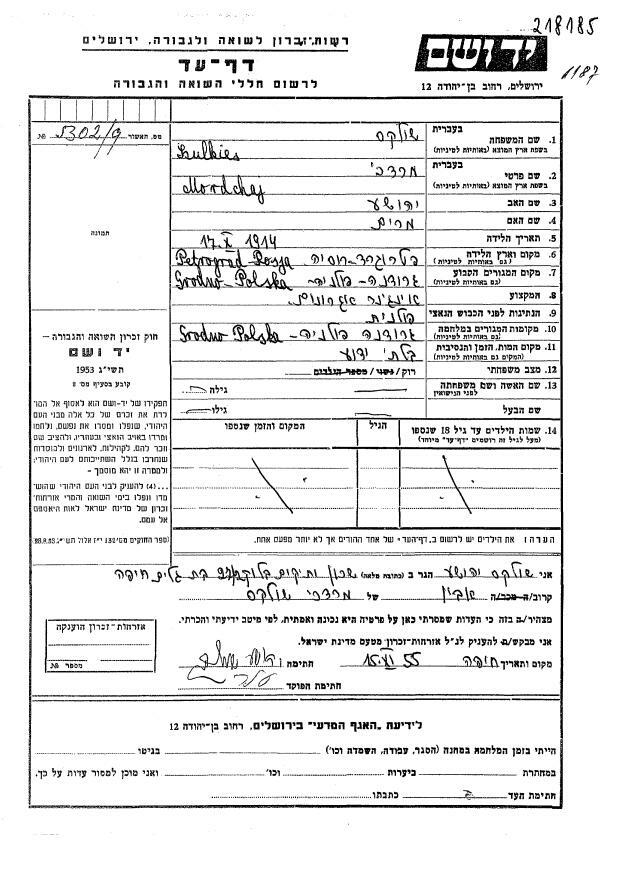 218185
1187
יד ושם
ירושלים, רחוב בן־יהודה 12
רשות־זכרון לשואה ולגבורה, ירושלים
דף־עד
לרשום חללי השואה והגבורה
מס. האשור № 5302/9
תמונה
1. שם המשפחה בעברית שולקס
בשפת ארץ המוצא (באותיות לטיניות) Szulkies
2. שם פרטי בעברית מרדכי
בשפת ארץ המוצא (באותיות לטיניות) Mordchej
3. שם האב יהושע
4. שם האם מרים
5. תאריך הלידה 17.X 1914
6. מקום וארץ הלידה (גם באותיות לטיניות) פטרוגרד-רוסיה Petrograd-Rosja
7. מקום המגורים הקבוע (גם באותיות לטיניות) גרודנה-פולניה- Grodno-Polska
8. המקצוע אינג'נר אגרונום.
9. הנתינות לפני הכבוש הנאצי פולנית
10. מקומות המגורים במלחמה (גם באותיות לטיניות) גרודנה פולניה- Grodno Polska
11. מקום המות, הזמן והנסיבות (המקום גם באותיות לטיניות) בלתי ידוע
12. מצב משפחתי רוק / נשוי / מספר הילדים
13. שם האשה ושם משפחתה לפני הנישואין גילה
שם הבעל גילו
14. שמות הילדים עד גיל 18 שנספו (מעל לגיל זה רושמים "דף־עד" מיוחד)
הגיל
המקום והזמן שנספו
חוק זכרון השואה והגבורה –
יד ושם
תשי"ג 1953
קובע בסעיף מס' 2
תפקידו של יד־ושם הוא לאסוף אל המו־
לדת את זכרם של כל אלה מבני העם
היהודי, שנפלו ומסרו את נפשם, נלחמו
ומרדו באויב הנאצי ובעוזריו, ולהציב שם
וזכר להם, לקהילות, לארגונים ולמוסדות
שנחרבו בגלל השתייכותם לעם היהודי,
ולמטרה זו יהא מוסמך –
...(4) להעניק לבני העם היהודי שהוש־
מדו ונפלו בימי השואה והמרי אזרחות־
זכרון של מדינת ישראל לאות היאספם
אל עמם.
הערה: את הילדים יש לרשום ב"דף־העד" של אחד ההורים אך לא יותר מפעם אחת.
אני שולקס יהושע הגר ב (כתובת מלאה) שכון ותיקים בלוק בת גלים חיפה
קרוב/ה מכר/ה אביו של מרדכי שולקס
מצהיר/ה בזה כי העדות שמסרתי כאן על פרטיה היא נכונה ואמתית, לפי מיטב ידיעתי והכרתי.
אני מבקש/ת להעניק לנ"ל אזרחות־זכרון מטעם מדינת ישראל.
מקום ותאריך חיפה 15.XI 55 חתימה
חתימת הפוקד
אזרחות־זכרון הוענקה
מספר №
לידיעת "האגף המדעי" בירושלים, רחוב בן־יהודה 12
הייתי בזמן המלחמה במחנה (הסגר, עבודה, השמדה וכו') בגיטו
במחתרת ביערות וכו' ואני מוכן למסור עדות על כך.
חתימת העד כתבתו